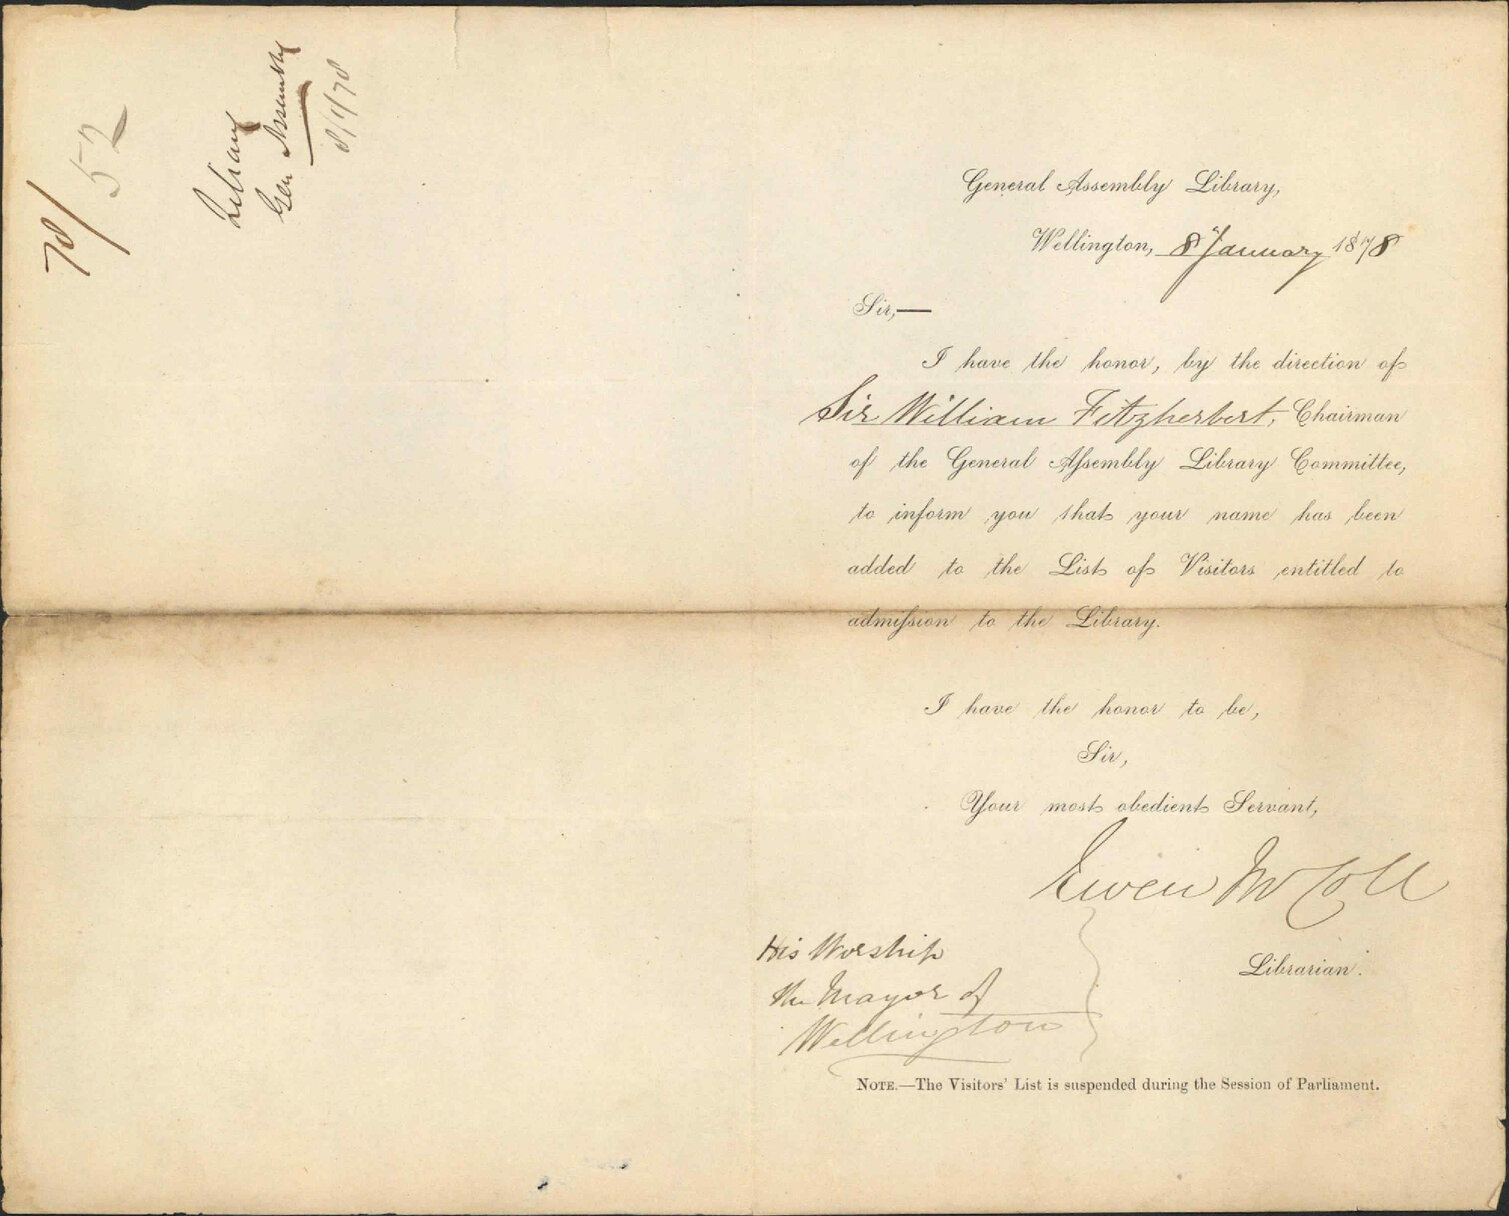 78/52
Library
Gen Assembly
8/1/78
General Assembly Library,
Wellington, 8 January 1878
Sir,—
I have the honor, by the direction of
Sir William Fitzherbert, Chairman
of the General Aſsembly Library Committee,
to inform you that your name has been
added to the List of Visitors entitled to
admiſsion to the Library.
I have the honor to be,
Sir,
Your most obedient Servant,
Ewen McColl
Librarian.
His Worship
the Mayor of
Wellington
NOTE.—The Visitors' List is suspended during the Session of Parliament.